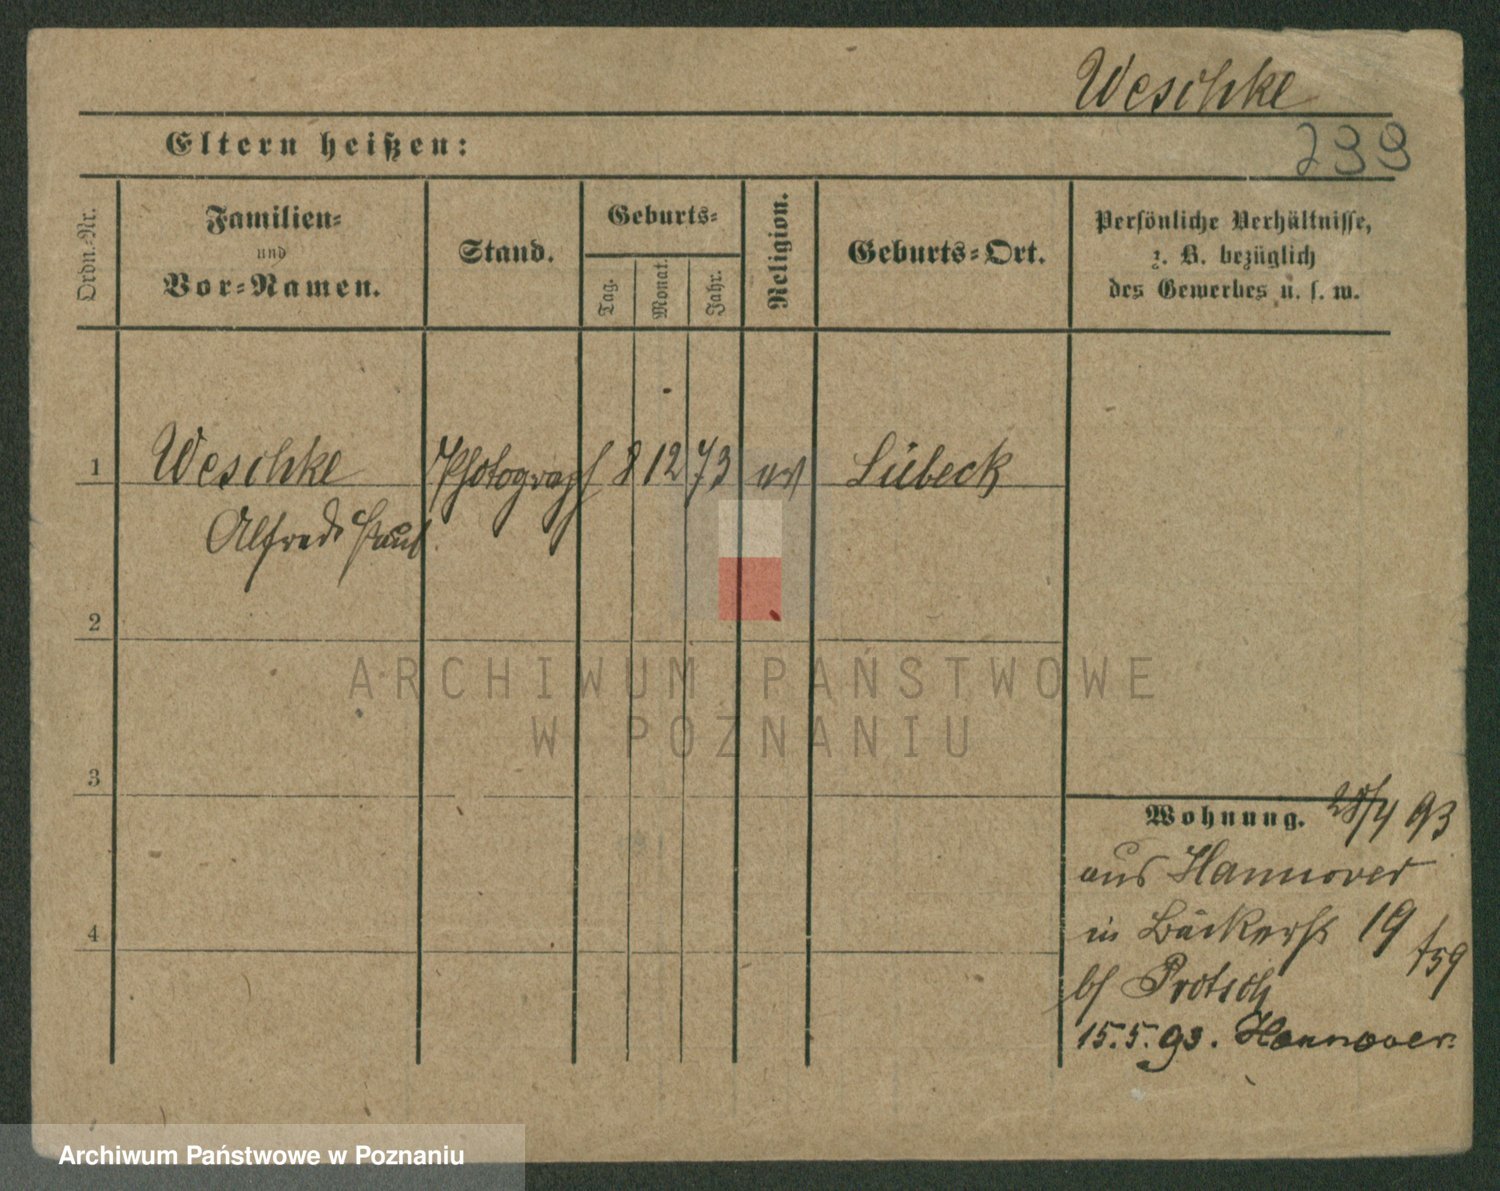 Weschke
Eltern heißen:
239
Ordn.-Nr.
Familien-
und
Vor-Namen.
Stand.
Geburts-
Tag.
Monat.
Jahr.
Religion.
Geburts-Ort.
Persönliche Verhältnisse,
z. B. bezüglich
des Gewerbes u. s. w.
1
Weschke
Photograph
8
12
73
ev
Lübeck
Alfred Paul.
2
ARCHIWUM PAŃSTWOWE
W POZNANIU
3
Wohnung.
28/4 93
aus Hannover
in Bäckerst 19
bf Protsch
15.5.93. Hannover.
4
Archiwum Państwowe w Poznaniu